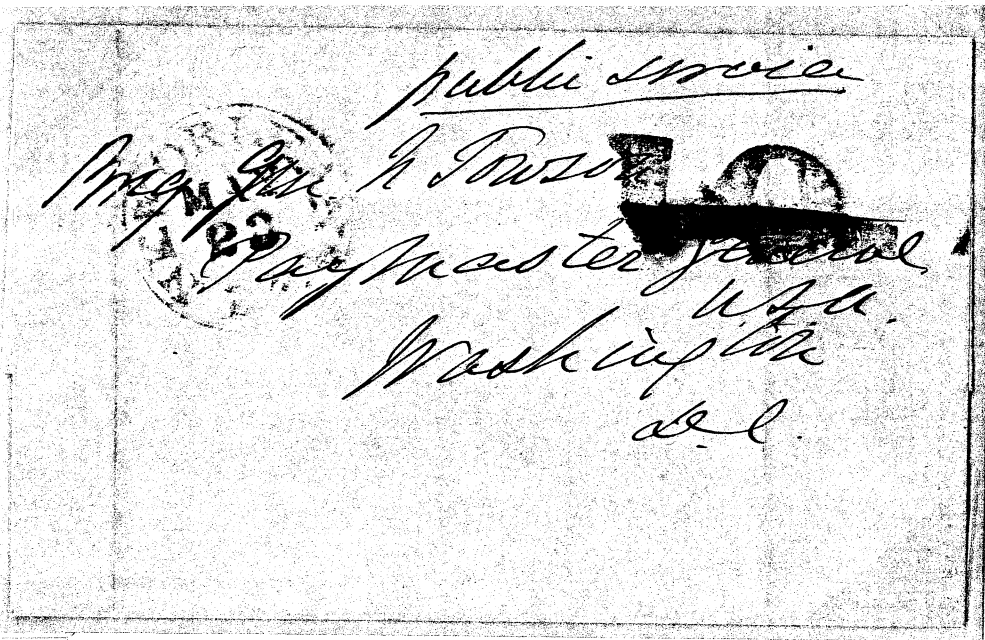 public service
Brig Gen N Towson
Paymaster General
U.S.A.
Washington
D.C.
10
MAY
23